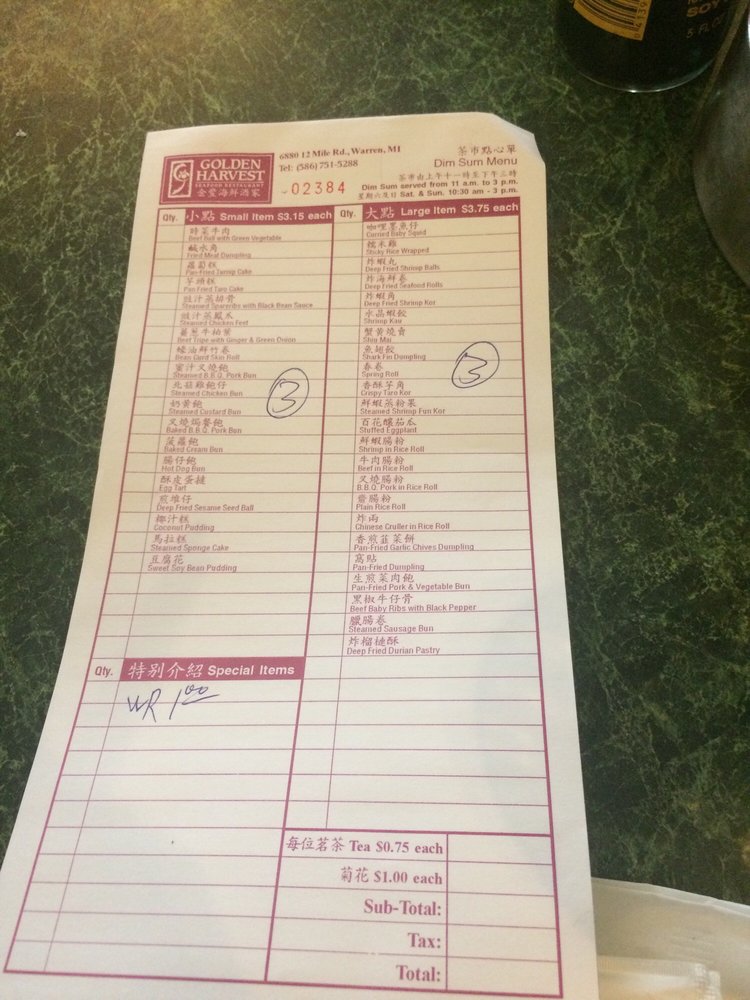 GOLDEN
HARVEST
SEAFOOD RESTAURANT
金豐海鮮酒家
6880 12 Mile Rd., Warren, MI
Tel: (586) 751-5288
02384
茶市點心單
Dim Sum Menu
茶市由上午十一時至下午三時
Dim Sum served from 11 a.m. to 3 p.m.
星期六及日 Sat. & Sun. 10:30 am - 3 p.m.
Qty. 小點 Small Item $3.15 each
時菜牛肉
Beef Ball with Green Vegetable
鹹水角
Fried Meat Dumpling
蘿蔔糕
Pan-Fried Turnip Cake
芋頭糕
Pan Fried Taro Cake
豉汁蒸排骨
Steamed Spareribs with Black Bean Sauce
豉汁蒸鳳爪
Steamed Chicken Feet
薑蔥牛柏葉
Beef Tripe with Ginger & Green Onion
蠔油鮮竹卷
Bean Curd Skin Roll
蜜汁叉燒飽
Steamed B.B.Q. Pork Bun
北菇雞飽仔
Steamed Chicken Bun
奶黄飽
Steamed Custard Bun
叉燒焗餐飽
Baked B.B.Q. Pork Bun
菠蘿飽
Baked Cream Bun
腸仔飽
Hot Dog Bun
酥皮蛋撻
Egg Tart
煎堆仔
Deep Fried Sesame Seed Ball
椰汁糕
Coconut Pudding
馬拉糕
Steamed Sponge Cake
豆腐花
Sweet Soy Bean Pudding
3
Qty. 大點 Large Item $3.75 each
咖哩墨魚仔
Curried Baby Squid
糯米雞
Sticky Rice Wrapped
炸蝦丸
Deep Fried Shrimp Balls
炸海鮮卷
Deep Fried Seafood Rolls
炸蝦角
Deep Fried Shrimp Kor
水晶蝦餃
Shrimp Kau
蟹黄燒賣
Shiu Mai
魚翅餃
Shark Fin Dumpling
春卷
Spring Roll
香酥芋角
Crispy Taro Kor
鮮蝦蒸粉果
Steamed Shrimp Fun Kor
百花釀茄瓜
Stuffed Eggplant
鮮蝦腸粉
Shrimp in Rice Roll
牛肉腸粉
Beef in Rice Roll
叉燒腸粉
B.B.Q. Pork in Rice Roll
齋腸粉
Plain Rice Roll
炸兩
Chinese Cruller in Rice Roll
香煎韮菜餅
Pan-Fried Garlic Chives Dumpling
窩貼
Pan-Fried Dumpling
生煎菜肉飽
Pan-Fried Pork & Vegetable Bun
黑椒牛仔骨
Beef Baby Ribs with Black Pepper
臘腸卷
Steamed Sausage Bun
炸榴槤酥
Deep Fried Durian Pastry
3
Qty. 特别介紹 Special Items
WR 1.00
每位茗茶 Tea $0.75 each
菊花 $1.00 each
Sub-Total:
Tax:
Total:
SOY